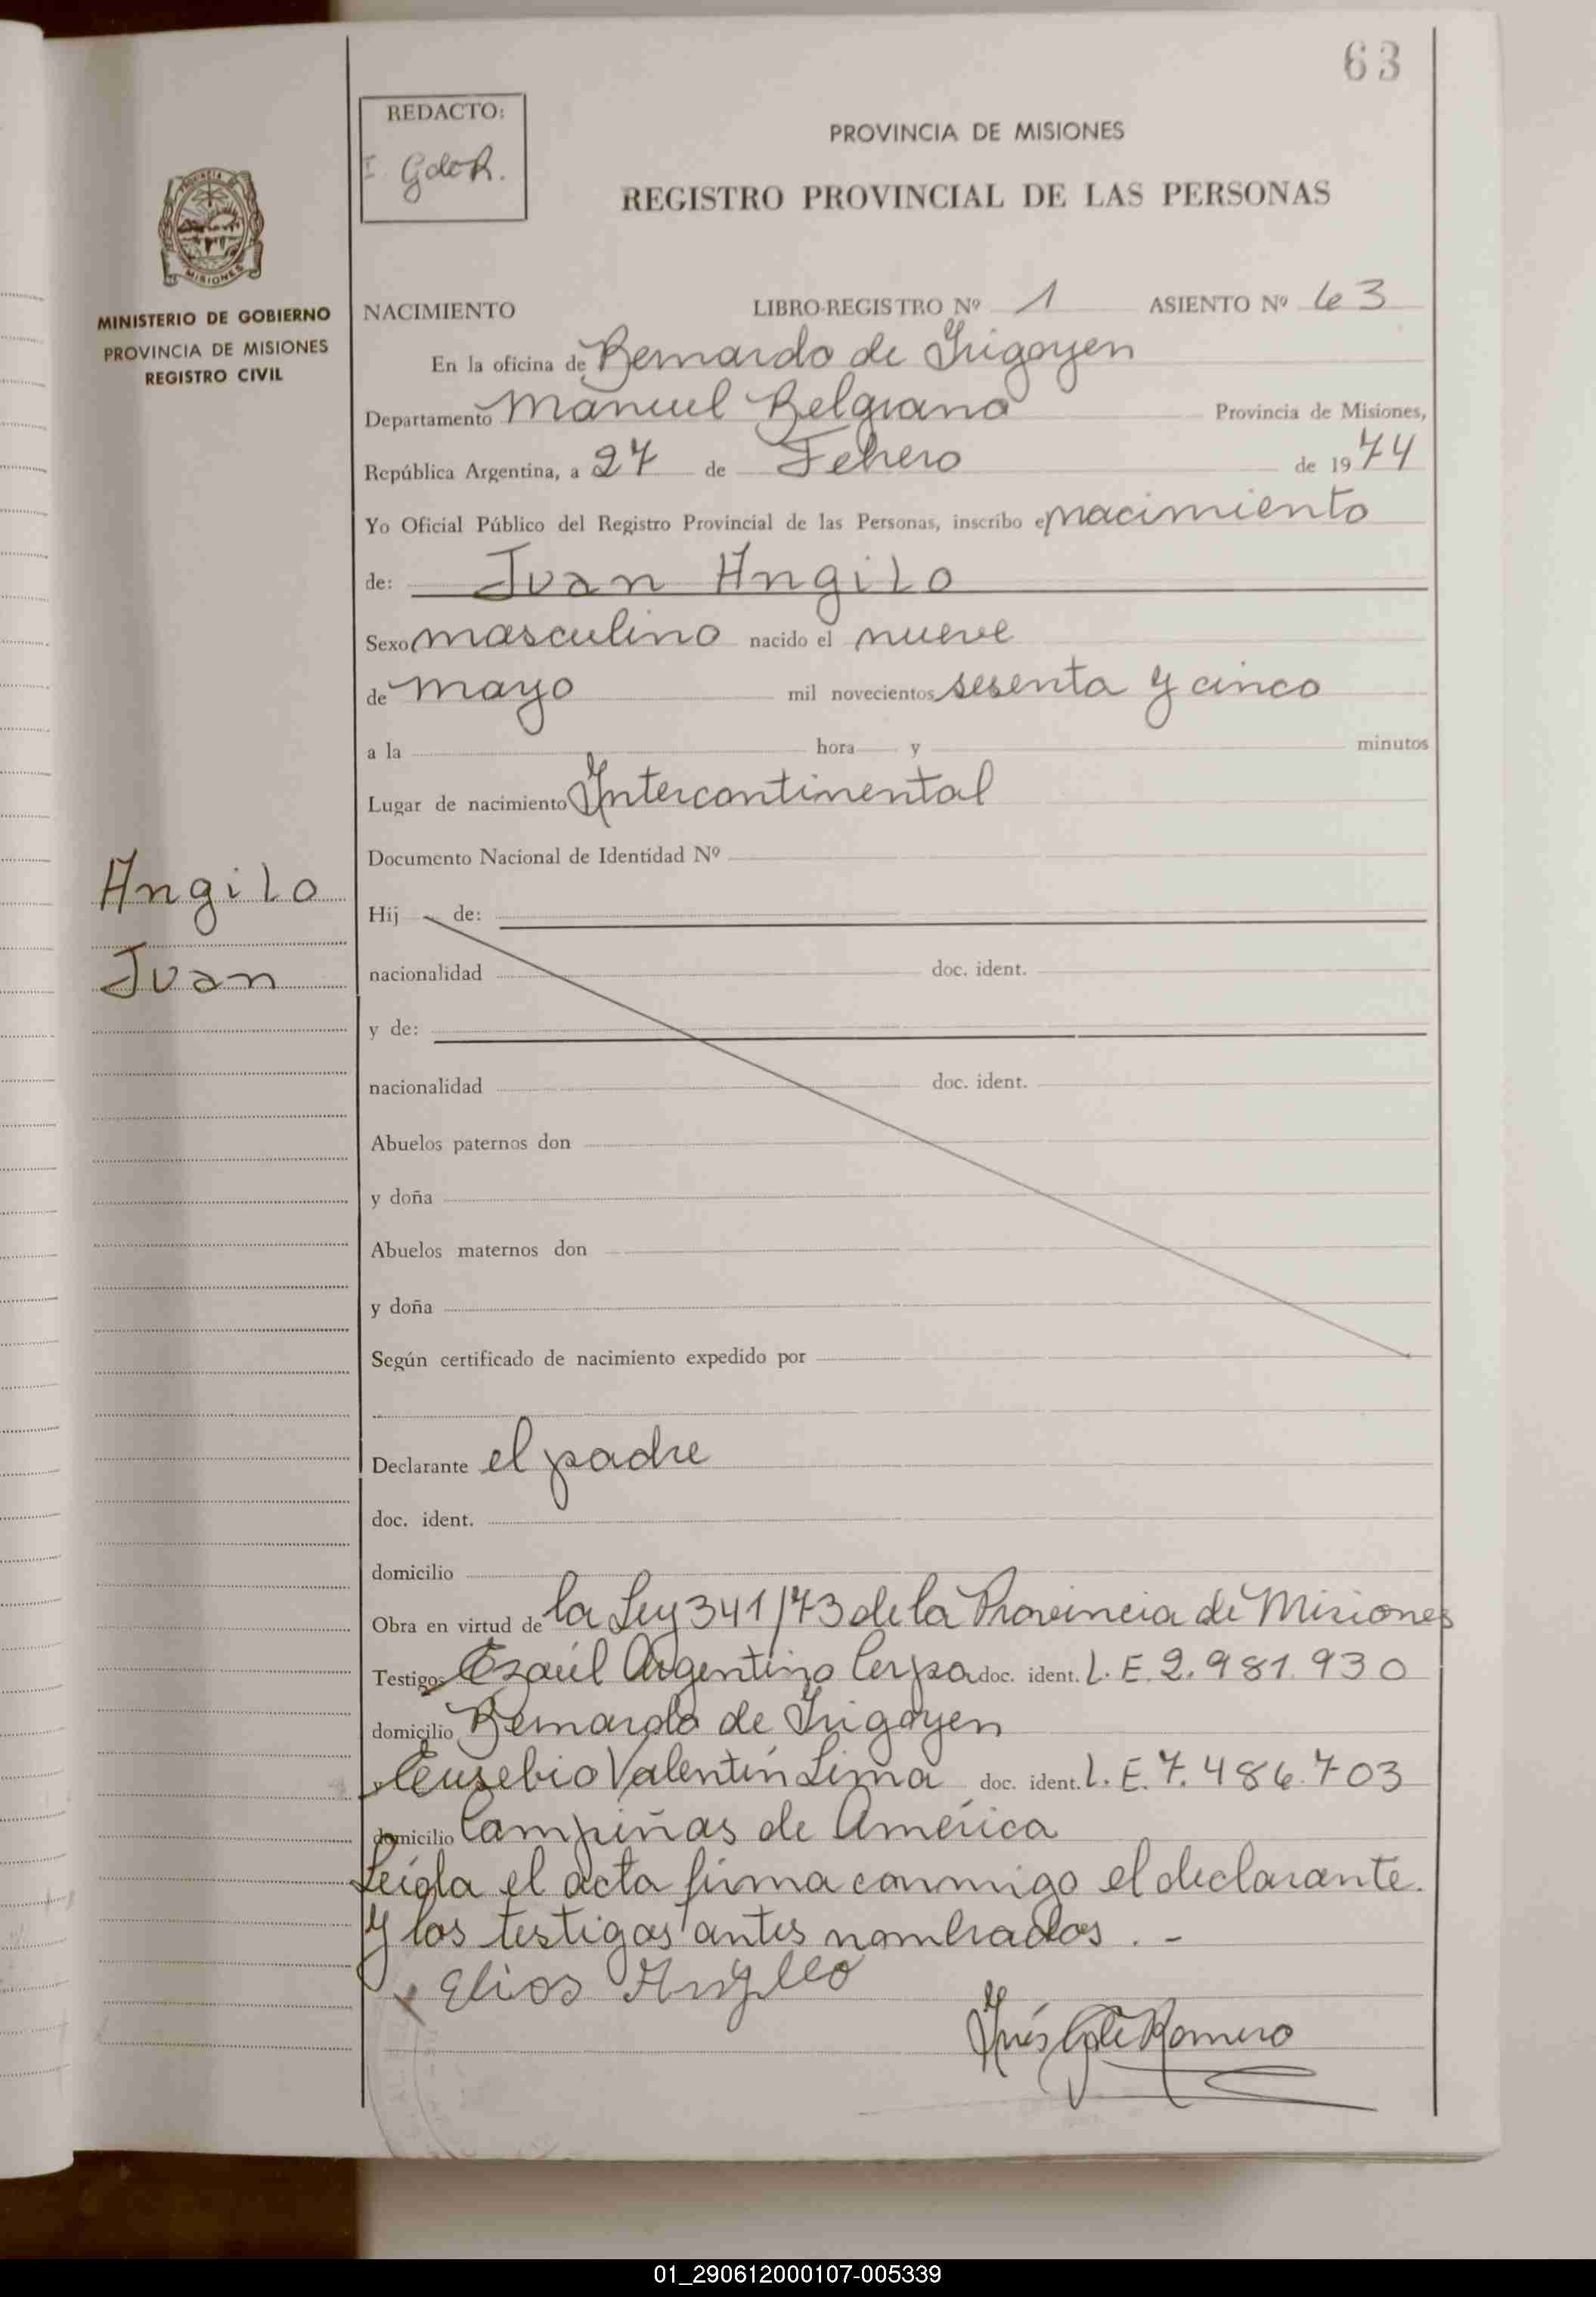 63
REDACTO:
I. G de R.
PROVINCIA DE MISIONES
REGISTRO PROVINCIAL DE LAS PERSONAS
PROVINCIA DE
MISIONES
MINISTERIO DE GOBIERNO
PROVINCIA DE MISIONES
REGISTRO CIVIL
NACIMIENTO LIBRO-REGISTRO Nº 1 ASIENTO Nº 63
En la oficina de Bernardo de Irigoyen
Departamento Manuel Belgrano Provincia de Misiones,
República Argentina, a 27 de Febrero de 1974
Yo Oficial Público del Registro Provincial de las Personas, inscribo el nacimiento
de: Juan Angilo
Sexo masculino nacido el nueve
de mayo mil novecientos sesenta y cinco
a la hora y minutos
Lugar de nacimiento Intercontinental
Documento Nacional de Identidad Nº
Angilo
Juan
Hij de:
nacionalidad doc. ident.
y de:
nacionalidad doc. ident.
Abuelos paternos don
y doña
Abuelos maternos don
y doña
Según certificado de nacimiento expedido por
Declarante el padre
doc. ident.
domicilio
Obra en virtud de la Ley 341/73 de la Provincia de Misiones
Testigos Ezaúl Argentino Cerpa doc. ident. L.E. 2.981.930
domicilio Bernardo de Irigoyen
y Eusebio Valentín Lima doc. ident. L.E. 7.486.703
domicilio Campiñas de América
Leída el acta firma conmigo el declarante.
Y los testigos antes nombrados . -
x Elios Angleo
Inés G de Romero
01_290612000107-005339